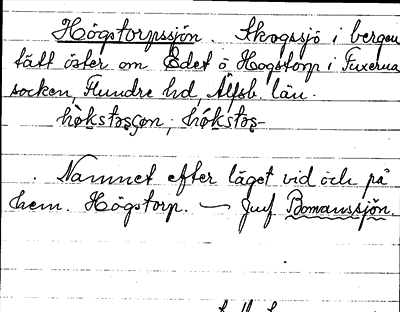 Högstorpssjön. Skogssjö i bergen
tätt öster om Edet ö Hogstorp i Fuxerna
socken, Flundre hd, Älfsb. län.
hòkstȯsçøn; hókstȯs-
Namnet efter läget vid och på
hem. Högstorp. — Jmf Bomanssjön.